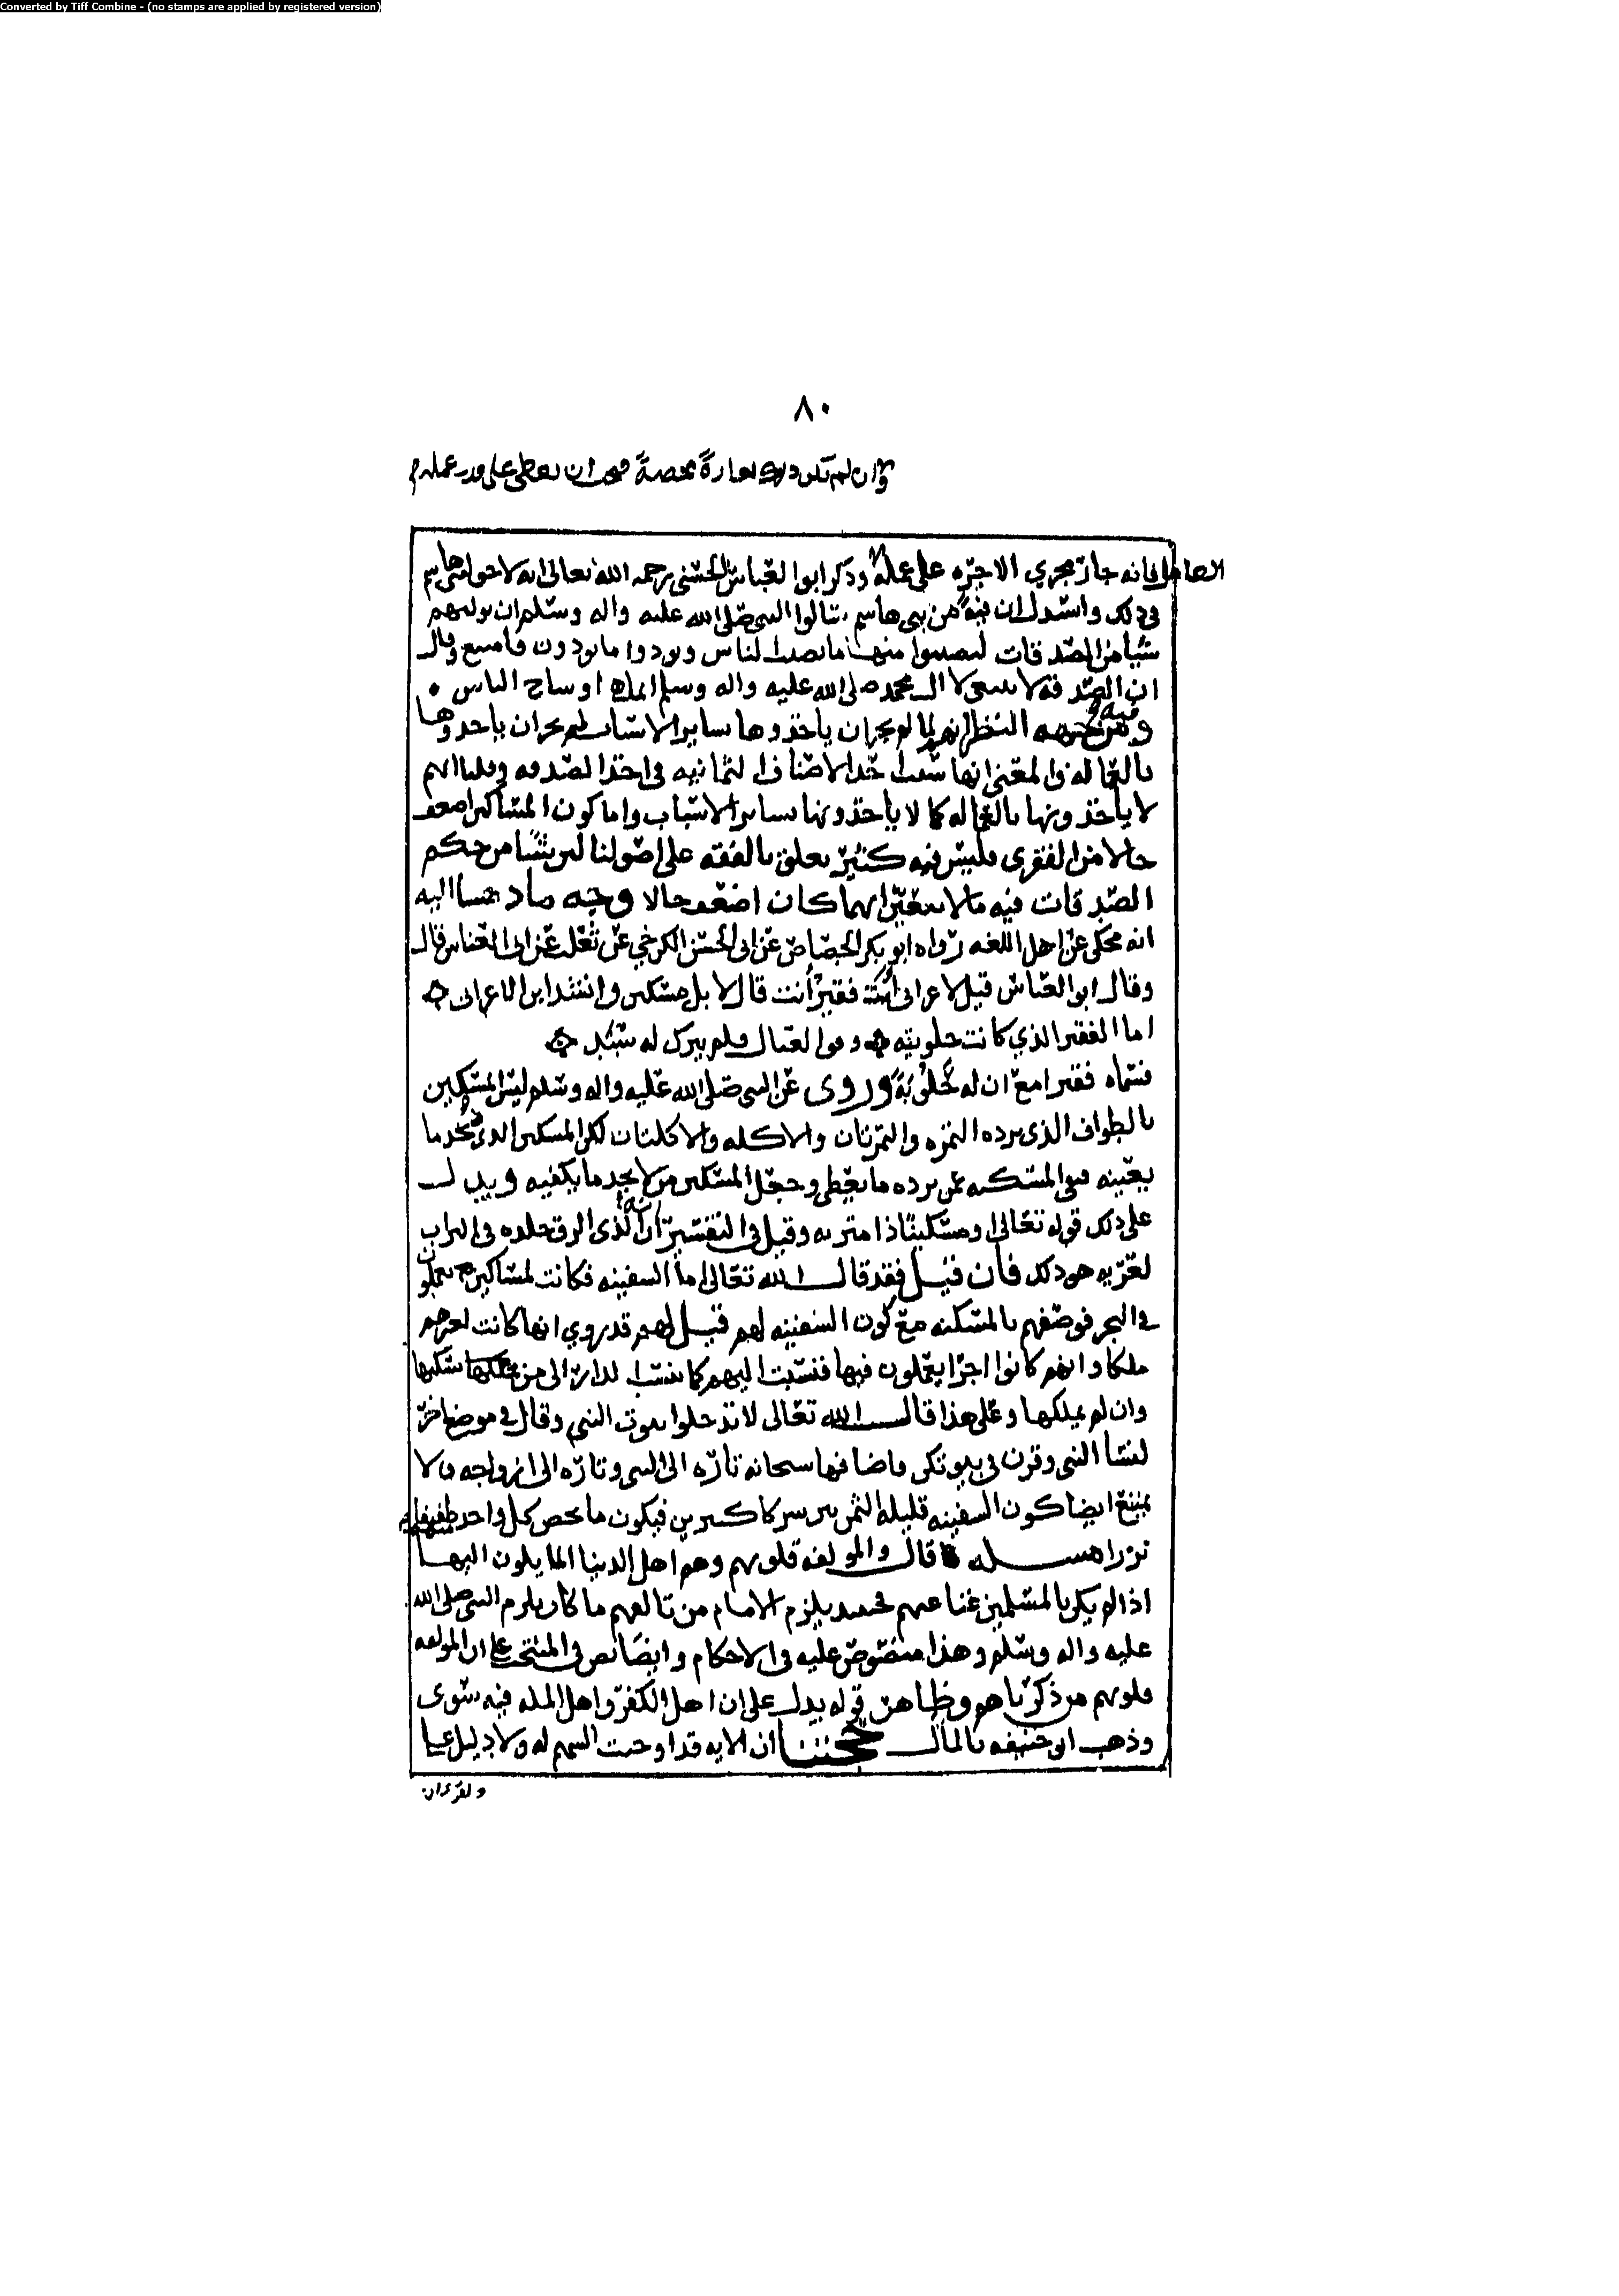 Converted by Tiff Combine - (no stamps are applied by registered version)
٨٠
وان لم تكن ان يعطى على قدر عملهم
العامل فانه جار مجرى الاجره على عمله وذكر ابوا لعباس الحسني رحمه الله تعالى انه لا حق لبني هاشم
في ذلك واستدل ان فتية من بني هاشم سالوا النبي صلى الله عليه واله وسلم ان يوليهم
شيا من الصدقات ليصيبوا منها ما يصيب الناس ويودوا ما يودون فامتنع وقال
ان الصدقه لا تنبغي لال محمد صلى الله عليه واله وسلم انما هي اوساخ الناس
ومن جهه النظر انهم لما لم يجز ان ياخذوها بساير الاسباب لم يجز ان ياخذوها
بالعماله والمعنى انها سبب احد الاصناف الثمانيه في اخذ الصدقه وقلنا انهم
لا ياخذونها بالعماله كما لا ياخذونها بساير الاسباب واما كون المساكين اضعف
حالا من الفقرى فليس فيه كثير تعلق بالفقه على اصولنا لان شيا من حكم
الصدقات فيه مالا يتغير ايهما كان اضعف حالا وجه ما ذهبنا اليه
انه محكى عن اهل اللغه رواه ابو بكر الجصاص عن ابى الحسن الكرخي عن ثعلب عن ابى العباس قال
وقال ابو العباس قيل لاعرابي افقير أنت قال لا بل مسكين وانشد ابن الاعرابي
اما الفقير الذي كانت حلوبته وفق العيال فلم يترك له سبد
فسماه فقيرا مع ان له حلوبة وروى عن النبي صلى الله عليه واله وسلم ليس المسكين
بالطواف الذى ترده التمره والتمرتان والاكله والاكلتان لكن المسكين الذى لا يجد ما
يغنيه فنفى المسكنه عمن يرده ما يعطى وجعل المسكين من لا يجد ما يكفيه ويدل
على ذلك قوله تعالى او مسكينا ذا متربه وقيل في التفسير انه الذى الزق جلده في التراب
لعريه فان قيل فقد قال الله تعالى اما السفينه فكانت لمساكين يعملون
في البحر فوصفهم بالمسكنه مع كون السفينه لهم قيل لهم قد روي انها كانت لغيرهم
ملكا وانهم كانوا اجرا يعملون فيها فنسبت اليهم كما تنسب الدار الى من يسكنها
وان لم يملكها وعلى هذا قال الله تعالى لا تدخلوا بيوت النبي وقال في موضع اخر
لنسا النبي وقرن في بيوتكن فاضافها سبحانه تاره الى النبي وتاره الى ازواجه ولا
يمتنع ايضا كون السفينه قليله الثمن بين شركا كثيرين فيكون ما يخص كل واحد منهم
نزرا مسله قال والمولفه قلوبهم وهم اهل الدنيا المايلون اليها
اذا لم يكن بالمسلمين غنا عنهم فحينيذ يلزم الامام من تالفهم ما كان يلزم النبي صلى الله
عليه واله وسلم وهذا منصوص عليه في الاحكام وايضا نص في المنتخب على ان المولفه
قلوبهم من ذكرناهم وظاهر قوله يدل على ان اهل الكفر واهل المله فيه سوى
وذهب ابو حنيفه حجتنا ان الايه قد اوجبت السهم له ولا دليل على